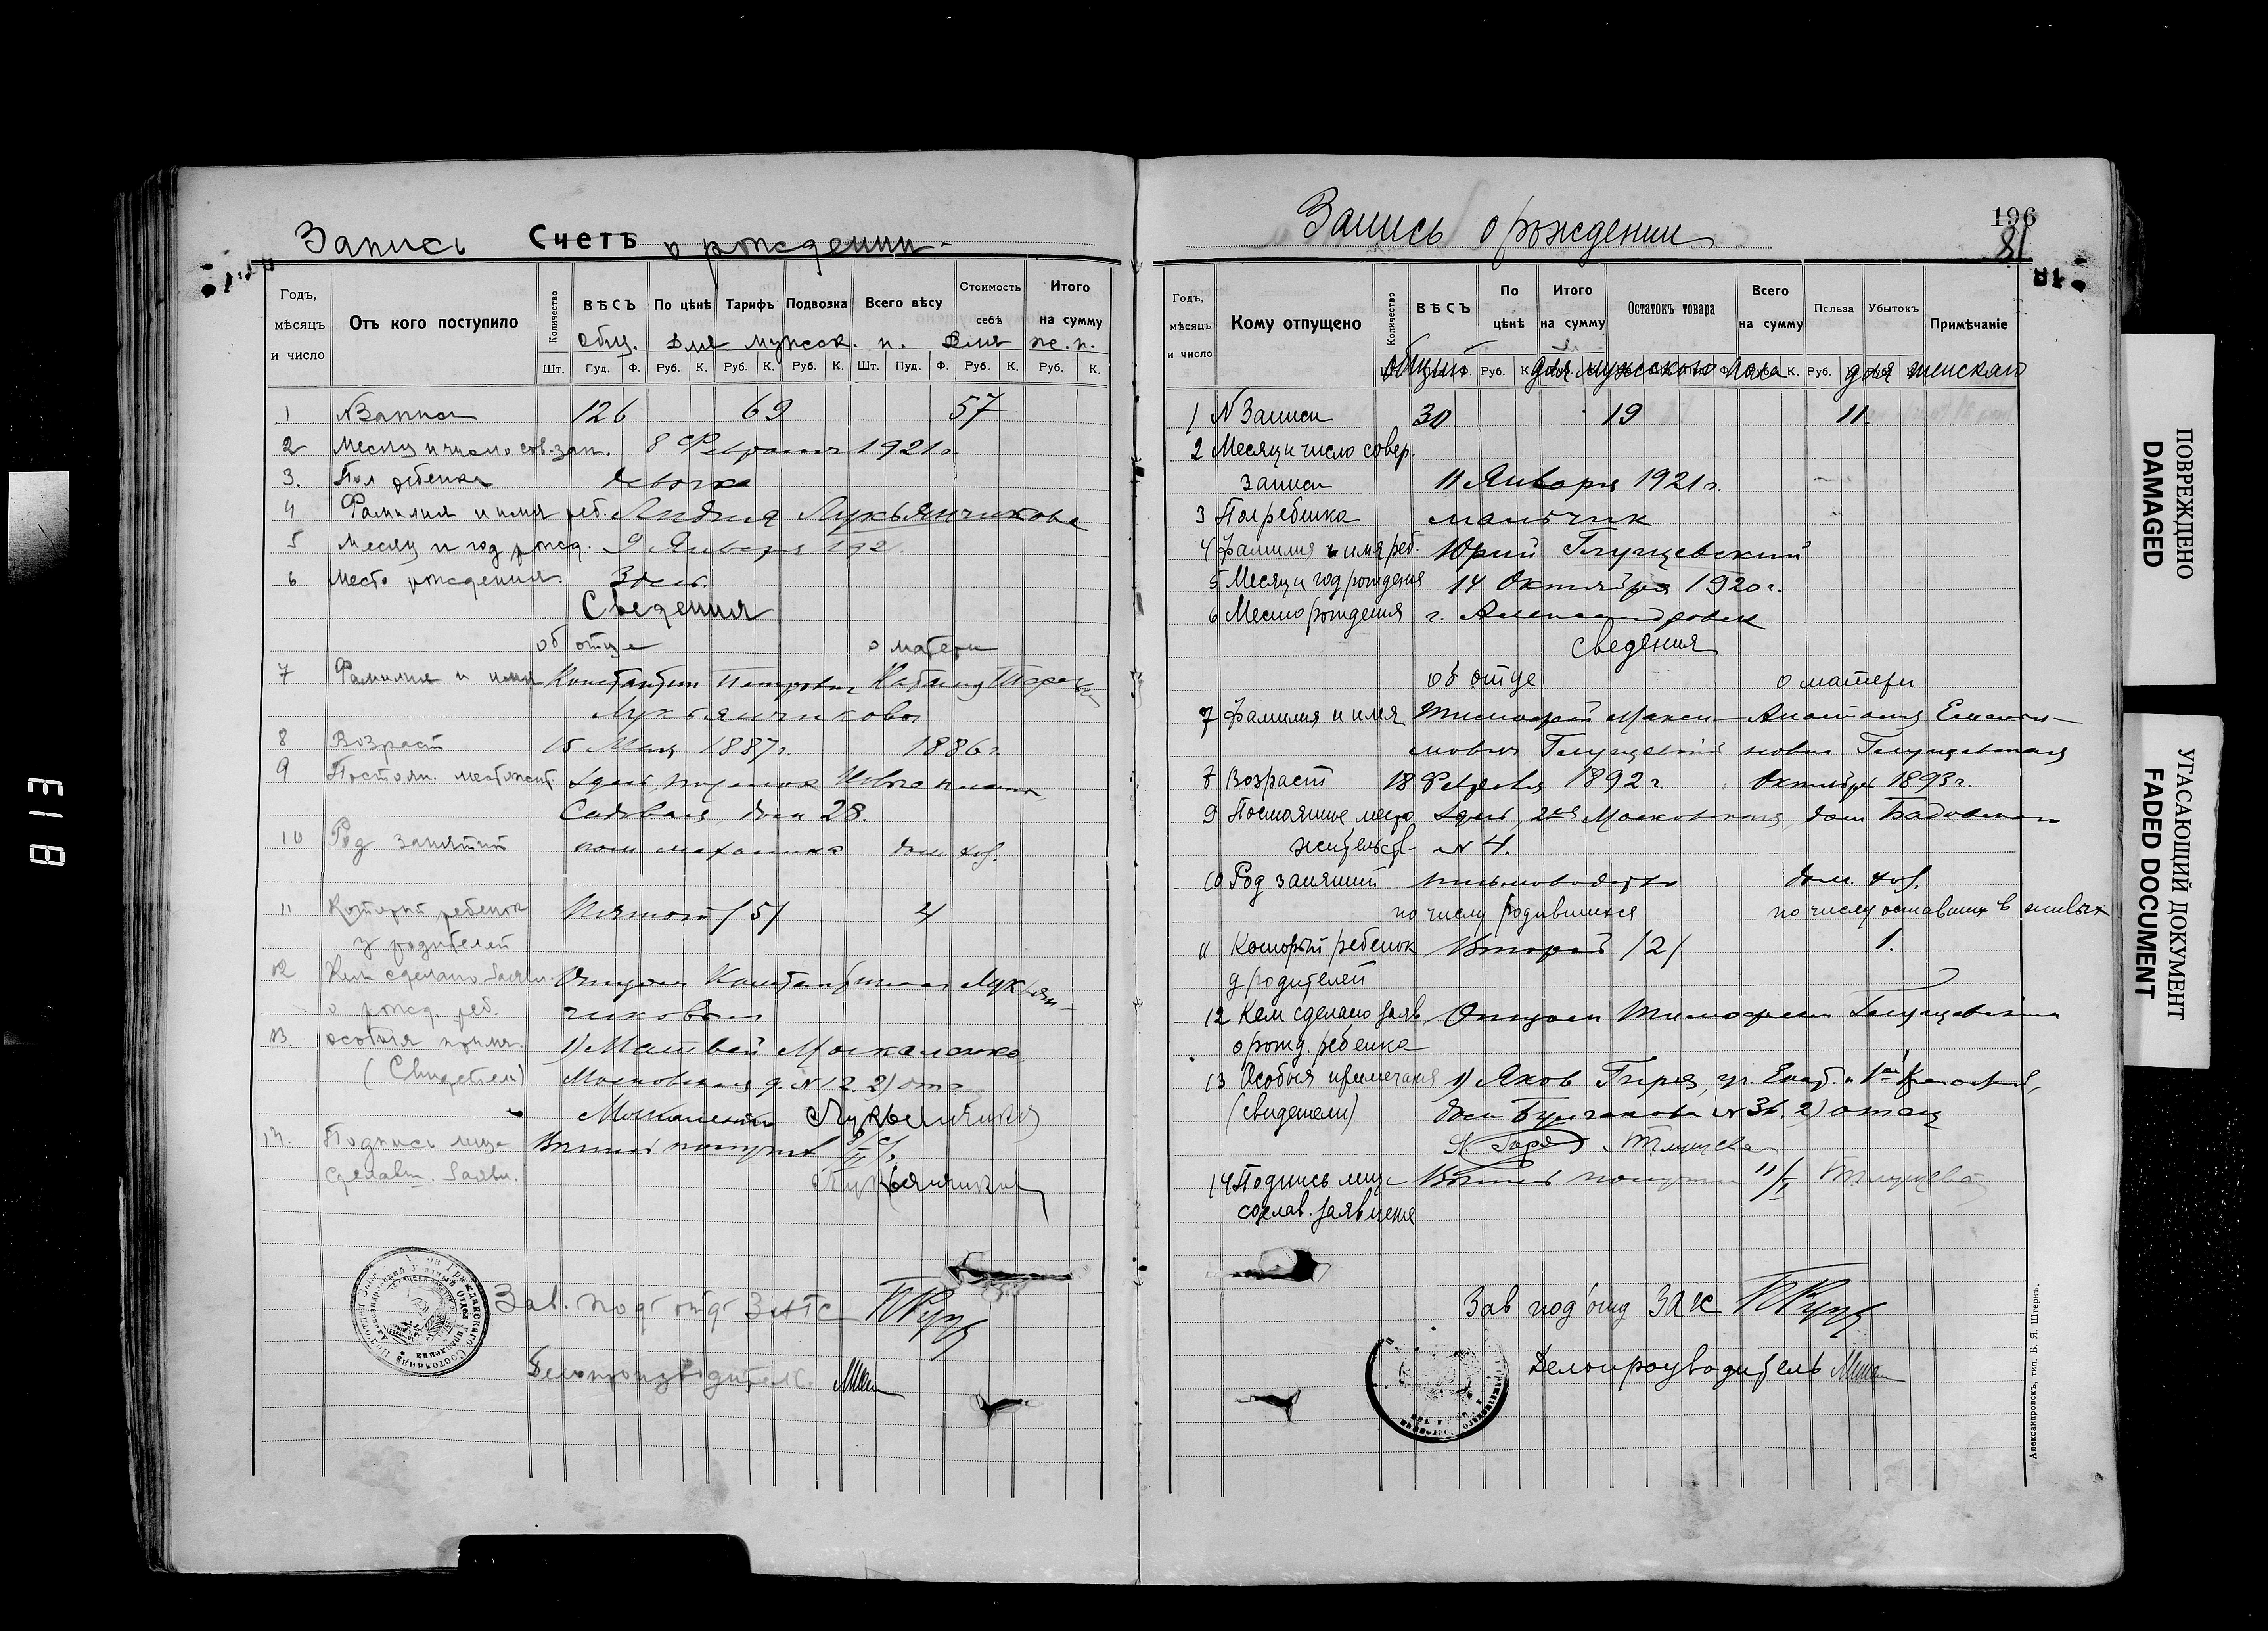 Запись Счетъ о рождении
Годъ, мѣсяцъ и число
Отъ кого поступило
Количество
ВѢСЪ
По цѣнѣ
Тарифъ
Подвозка
Всего вѣсу
Стоимость себѣ
Итого на сумму
Общ. Для мужск. п. Для ж. п.
Шт. Пуд. Ф. Руб. К. Руб. К. Руб. К. Шт. Пуд. Ф. Руб. К. Руб. К.
1 N Записи 126 69 57
2 Месяц и число сов. зап. 8 Февраля 1921 г.
3. Пол ребенка девочка
4 Фамилия и имя реб. Лидия Лукьянчикова
5 Месяц и год рожд. 9 Января 1921
6 Место рождения Здесь.
Сведения
об отце о матери
7 Фамилия и имя Константин Петрович
Лукьянчиковы
8 Возраст 15 Мая 1887 г. 1886 г.
9 Постоян. местожит. Здесь, поселок
Садовая дом 28.
10 Род занятий пом. механика дом. хоз.
11 Который ребенок Пятый /5/ 4
у родителей
12 Кем сделано заявл. Отцом Константином Лукьян-
о рожд. реб. чиковым
13. особыя примеч. 1) Матвей Москаленко
(Свидетели) Московская д. N 12 2) отец
Москаленко Лукьянчиков
14. Подпись лица
сделавш. заявл. Лукьянчиков
Зав. подотд ЗАГС
Делопроизводитель
Запись о рождении
196
81
Годъ, мѣсяцъ и число
Кому отпущено
Количество
ВѢСЪ
По цѣнѣ
Итого на сумму
Остатокъ товара
Всего на сумму
Польза
Убытокъ
Примѣчаніе
общий для мужского пола для женскаго
1 N Записи 30 19 11.
2 Месяц и число совер.
записи 11 Января 1921 г.
3 Пол ребенка мальчик
4 Фамилия и имя реб. Юрий Глущевский
5 Месяц и год рождения 14 Октября 1920 г.
6 Место рождения г. Александровск
Сведения
об отце о матери
7 Фамилия и имя Тимофей Макси- Анастасия
мович Глущевский Глущевская
8 Возраст 18 Февраля 1892 г. Октября 1893 г.
9 Постоянное место Здесь, Московская, дом
жительст. N 4.
10 Род занятий письмоводство дом. хоз.
по числу родившихся по числу оставших в живых
11 Который ребенок Второй /2/ 1.
у родителей
12 Кем сделано заяв. Отцом Тимофеем Глущевским
о рожд. ребенка
13 Особыя примечания 1) Яков Гиря,
(свидетели) дом N 36. 2) отец
14 Подпись лица 11/I
сделав. заявление
Зав подотд ЗАГС
Делопроизводитель
Александровскъ, тип. Б. Я. Штернъ.
ПОВРЕЖДЕНО
DAMAGED
УГАСАЮЩИЙ ДОКУМЕНТ
FADED DOCUMENT